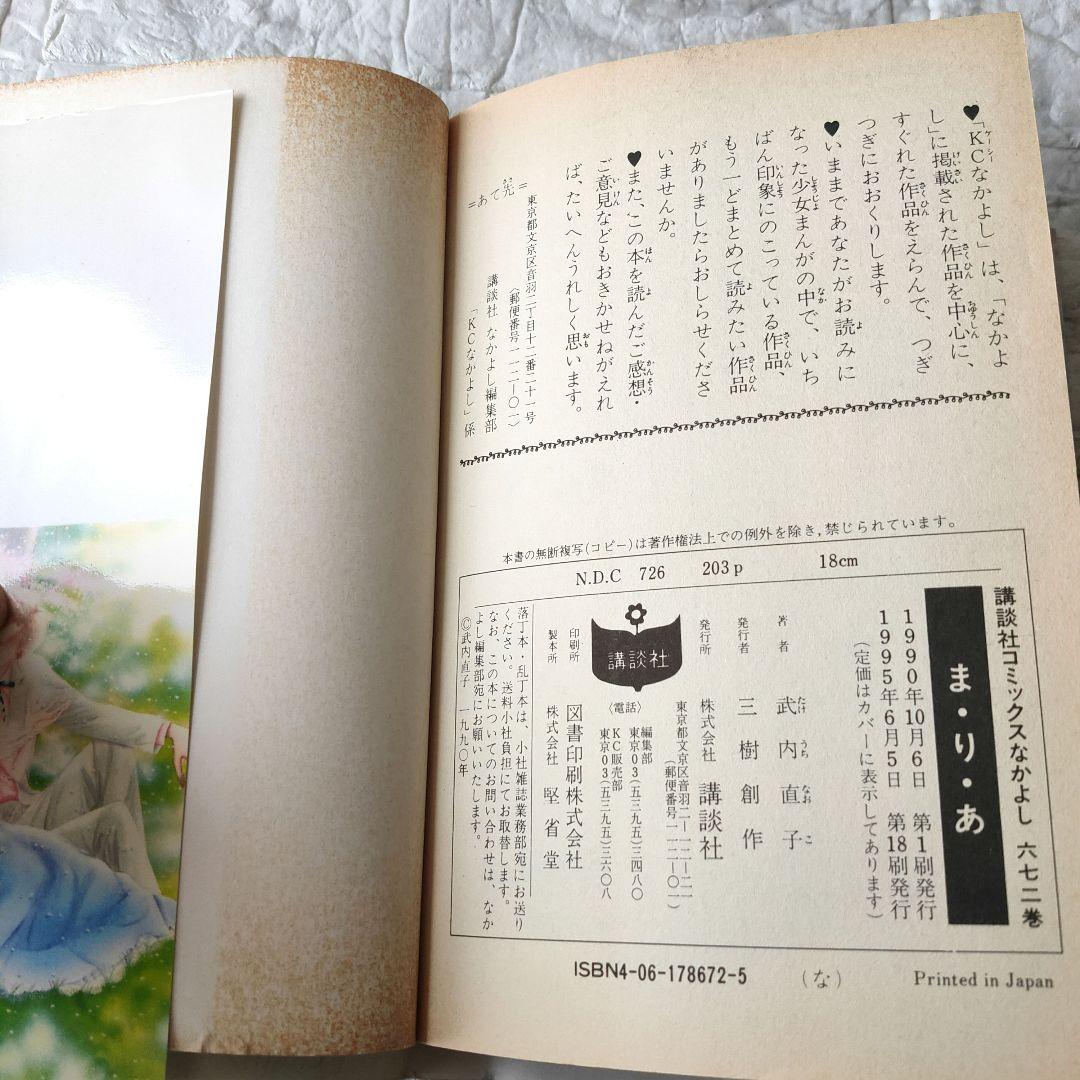 ♥「KCなかよし」は、「なかよ
し」に掲載された作品を中心に、
すぐれた作品をえらんで、つぎ
つぎにおおくりします。
♥いままであなたがお読みに
なった少女まんがの中で、いち
ばん印象にのこっている作品、
もう一どまとめて読みたい作品
がありましたらおしらせくださ
いませんか。
♥また、この本を読んだご感想・
ご意見などもおきかせねがえれ
ば、たいへんうれしく思います。
=あて先=
東京都文京区音羽二丁目十二番二十一号
〈郵便番号一一二―〇一〉
講談社 なかよし編集部
「KCなかよし」係
本書の無断複写(コピー)は著作権法上での例外を除き,禁じられています。
N.D.C 726 203p 18cm
講談社コミックスなかよし 六七二巻
ま・り・あ
1990年10月6日 第1刷発行
1995年6月5日 第18刷発行
(定価はカバーに表示してあります)
著者 武内直子
発行者 三樹創作
発行所 株式会社 講談社
東京都文京区音羽二―一二―二一
(郵便番号一一二―〇一)
〈電話〉
編集部
東京03(五三九五)三四八〇
KC販売部
東京03(五三九五)三六〇八
講談社
印刷所 図書印刷株式会社
製本所 株式会社 堅省堂
落丁本・乱丁本は、小社雑誌業務部宛にお送り
ください。送料小社負担にてお取替します。
なお、この本についてのお問い合わせは、なか
よし編集部宛にお願いいたします。
©武内直子 一九九〇年
ISBN4-06-178672-5 (な) Printed in Japan